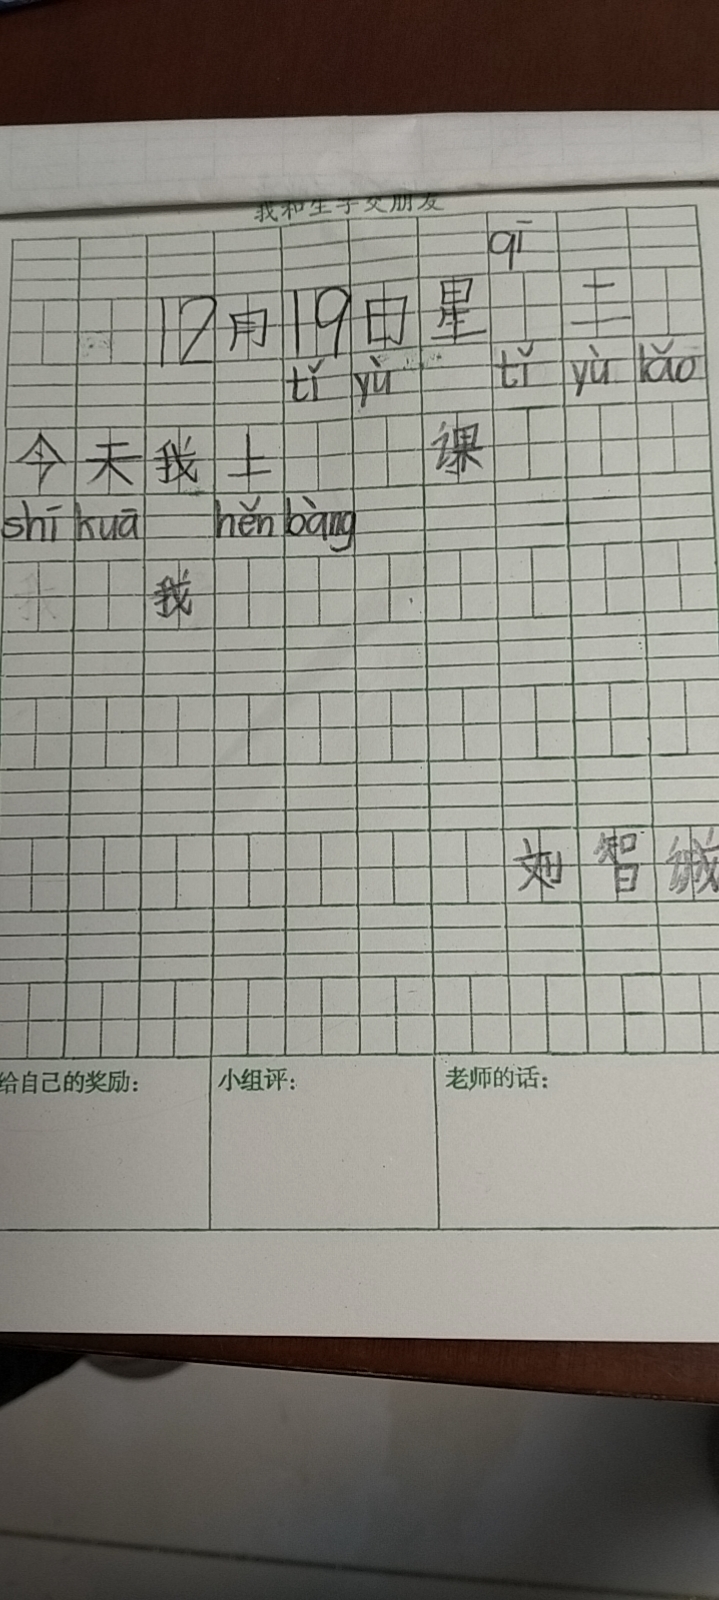 我和生字交朋友
qī
12月19日星 二
tǐ yù tǐ yù lǎo
今天我上 课
shī kuā hěn bàng
我 我
刘智诚
给自己的奖励: 小组评: 老师的话: